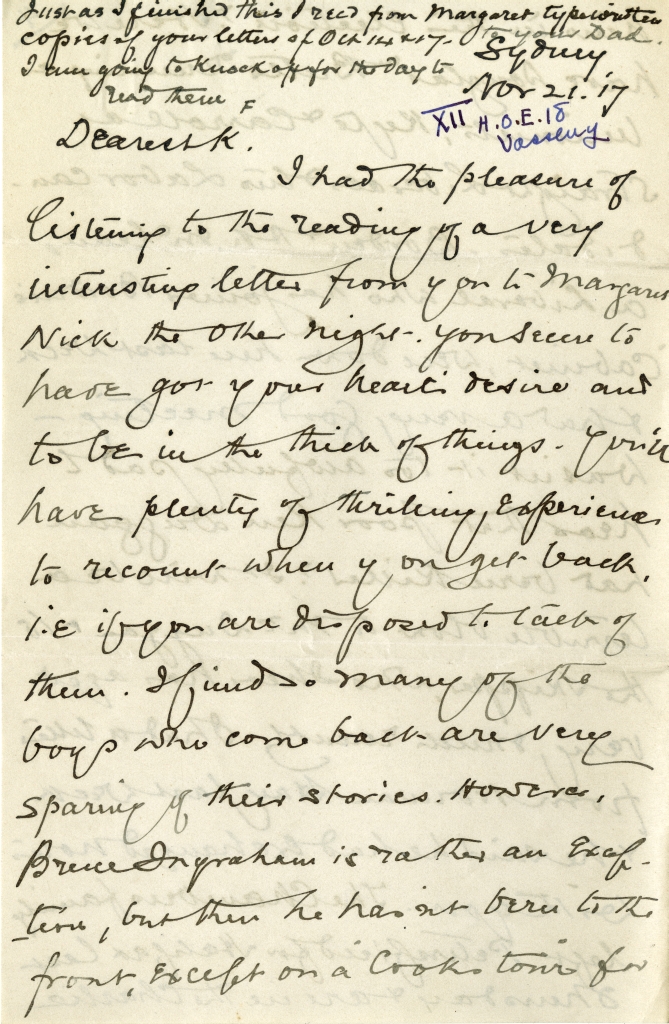 Just as I finished this I recd from Margaret typewritten
copies of your letters of Oct 14 & 17 - to your Dad.
I am going to knock off for the day to
read them
Sydney
Nov 21. 17
XII H.O.E. 18
Vasseny
Dearest K.
I had the pleasure of
listening to the reading of a very
interesting letter from you to Margaret
Nick the other night. You seem to
have got your heart's desire and
to be in the thick of things. You'll
have plenty of thrilling experiences
to recount when you get back,
i.e if you are disposed to talk of
them. I find so many of the
boys who come back are very
sparing of their stories. However,
Bruce Ingraham is rather an excep-
tion, but then he hasnt been to the
front, except on a Cooks tour for